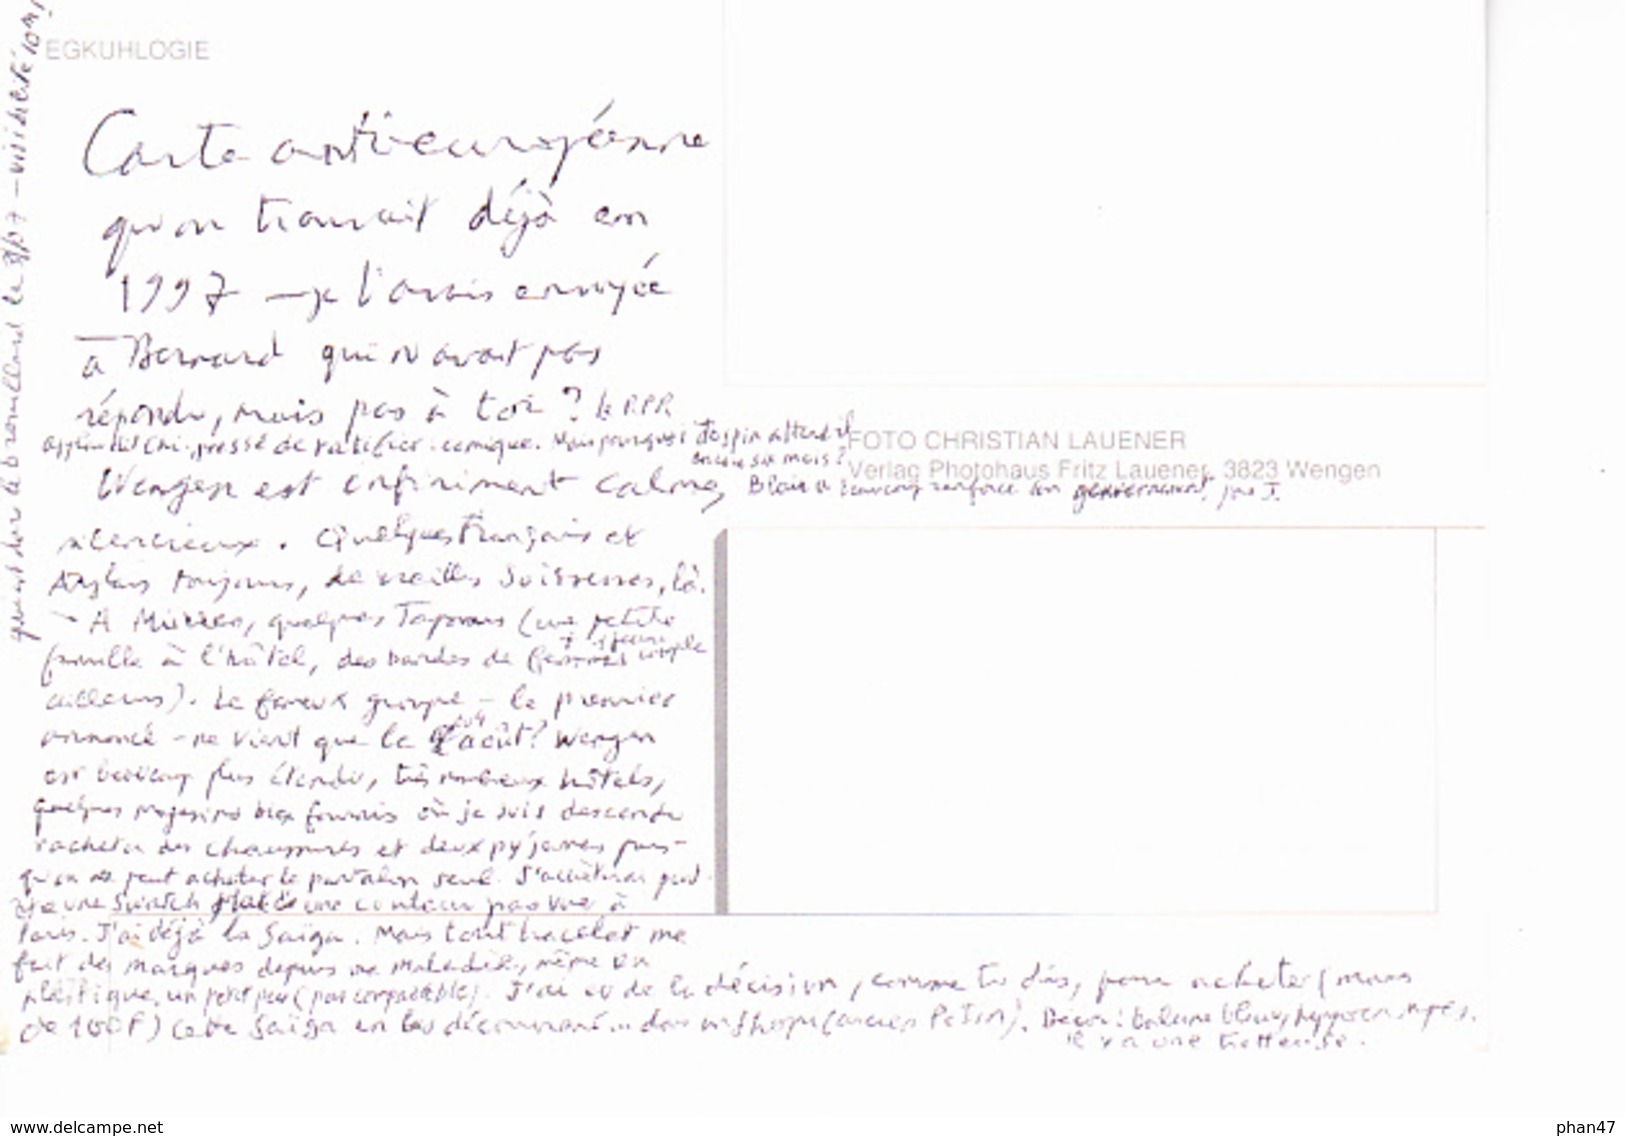 EGKUHLOGIE
Carte antieuropéenne
qu'on trouvait déjà en
1997 — je l'avais envoyée
à Bernard qui n'avait pas
répondu, mais pas à toi ? le RPR
pressé de ratifier. comique. Mais pourquoi Jospin attend il
encore six mois ?
FOTO CHRISTIAN LAUENER
Verlag Photohaus Fritz Lauener, 3823 Wengen
Wengen est infiniment calme, Blair a beaucoup renforcé son gouvernement, pas J.
silencieux. Quelques Français et
Anglais toujours, de vieilles Suissesses, là.
- A Mürren, quelques Japonais (une petite
famille à l'hôtel, des bandes de femmes + 1 jeune couple
ailleurs). Le fameux groupe - le premier
annoncé - ne vient que le août ? Wengen
est beaucoup plus étendu, très nombreux hôtels,
quelques magasins bien fournis où je suis descendu
racheter des chaussures et deux pyjamas puis-
qu'on ne peut acheter le pantalon seul. J'achèterai peut
être une Swatch une couleur pas vue à
Paris. J'ai déjà la Saïga. Mais tout bracelet me
fait des marques depuis ma maladie, même en
plastique, un petit peu (pas comparable). J'ai eu de la décision, comme tu dis, pour acheter (moins
de 100F) cette Saïga en la découvrant... dans un shop (ancien). Décor : baleine bleue, hippocampes.
il y a une trotteuse.
quand le brouillard le — visibilité 10m,
www.delcampe.net
phan47